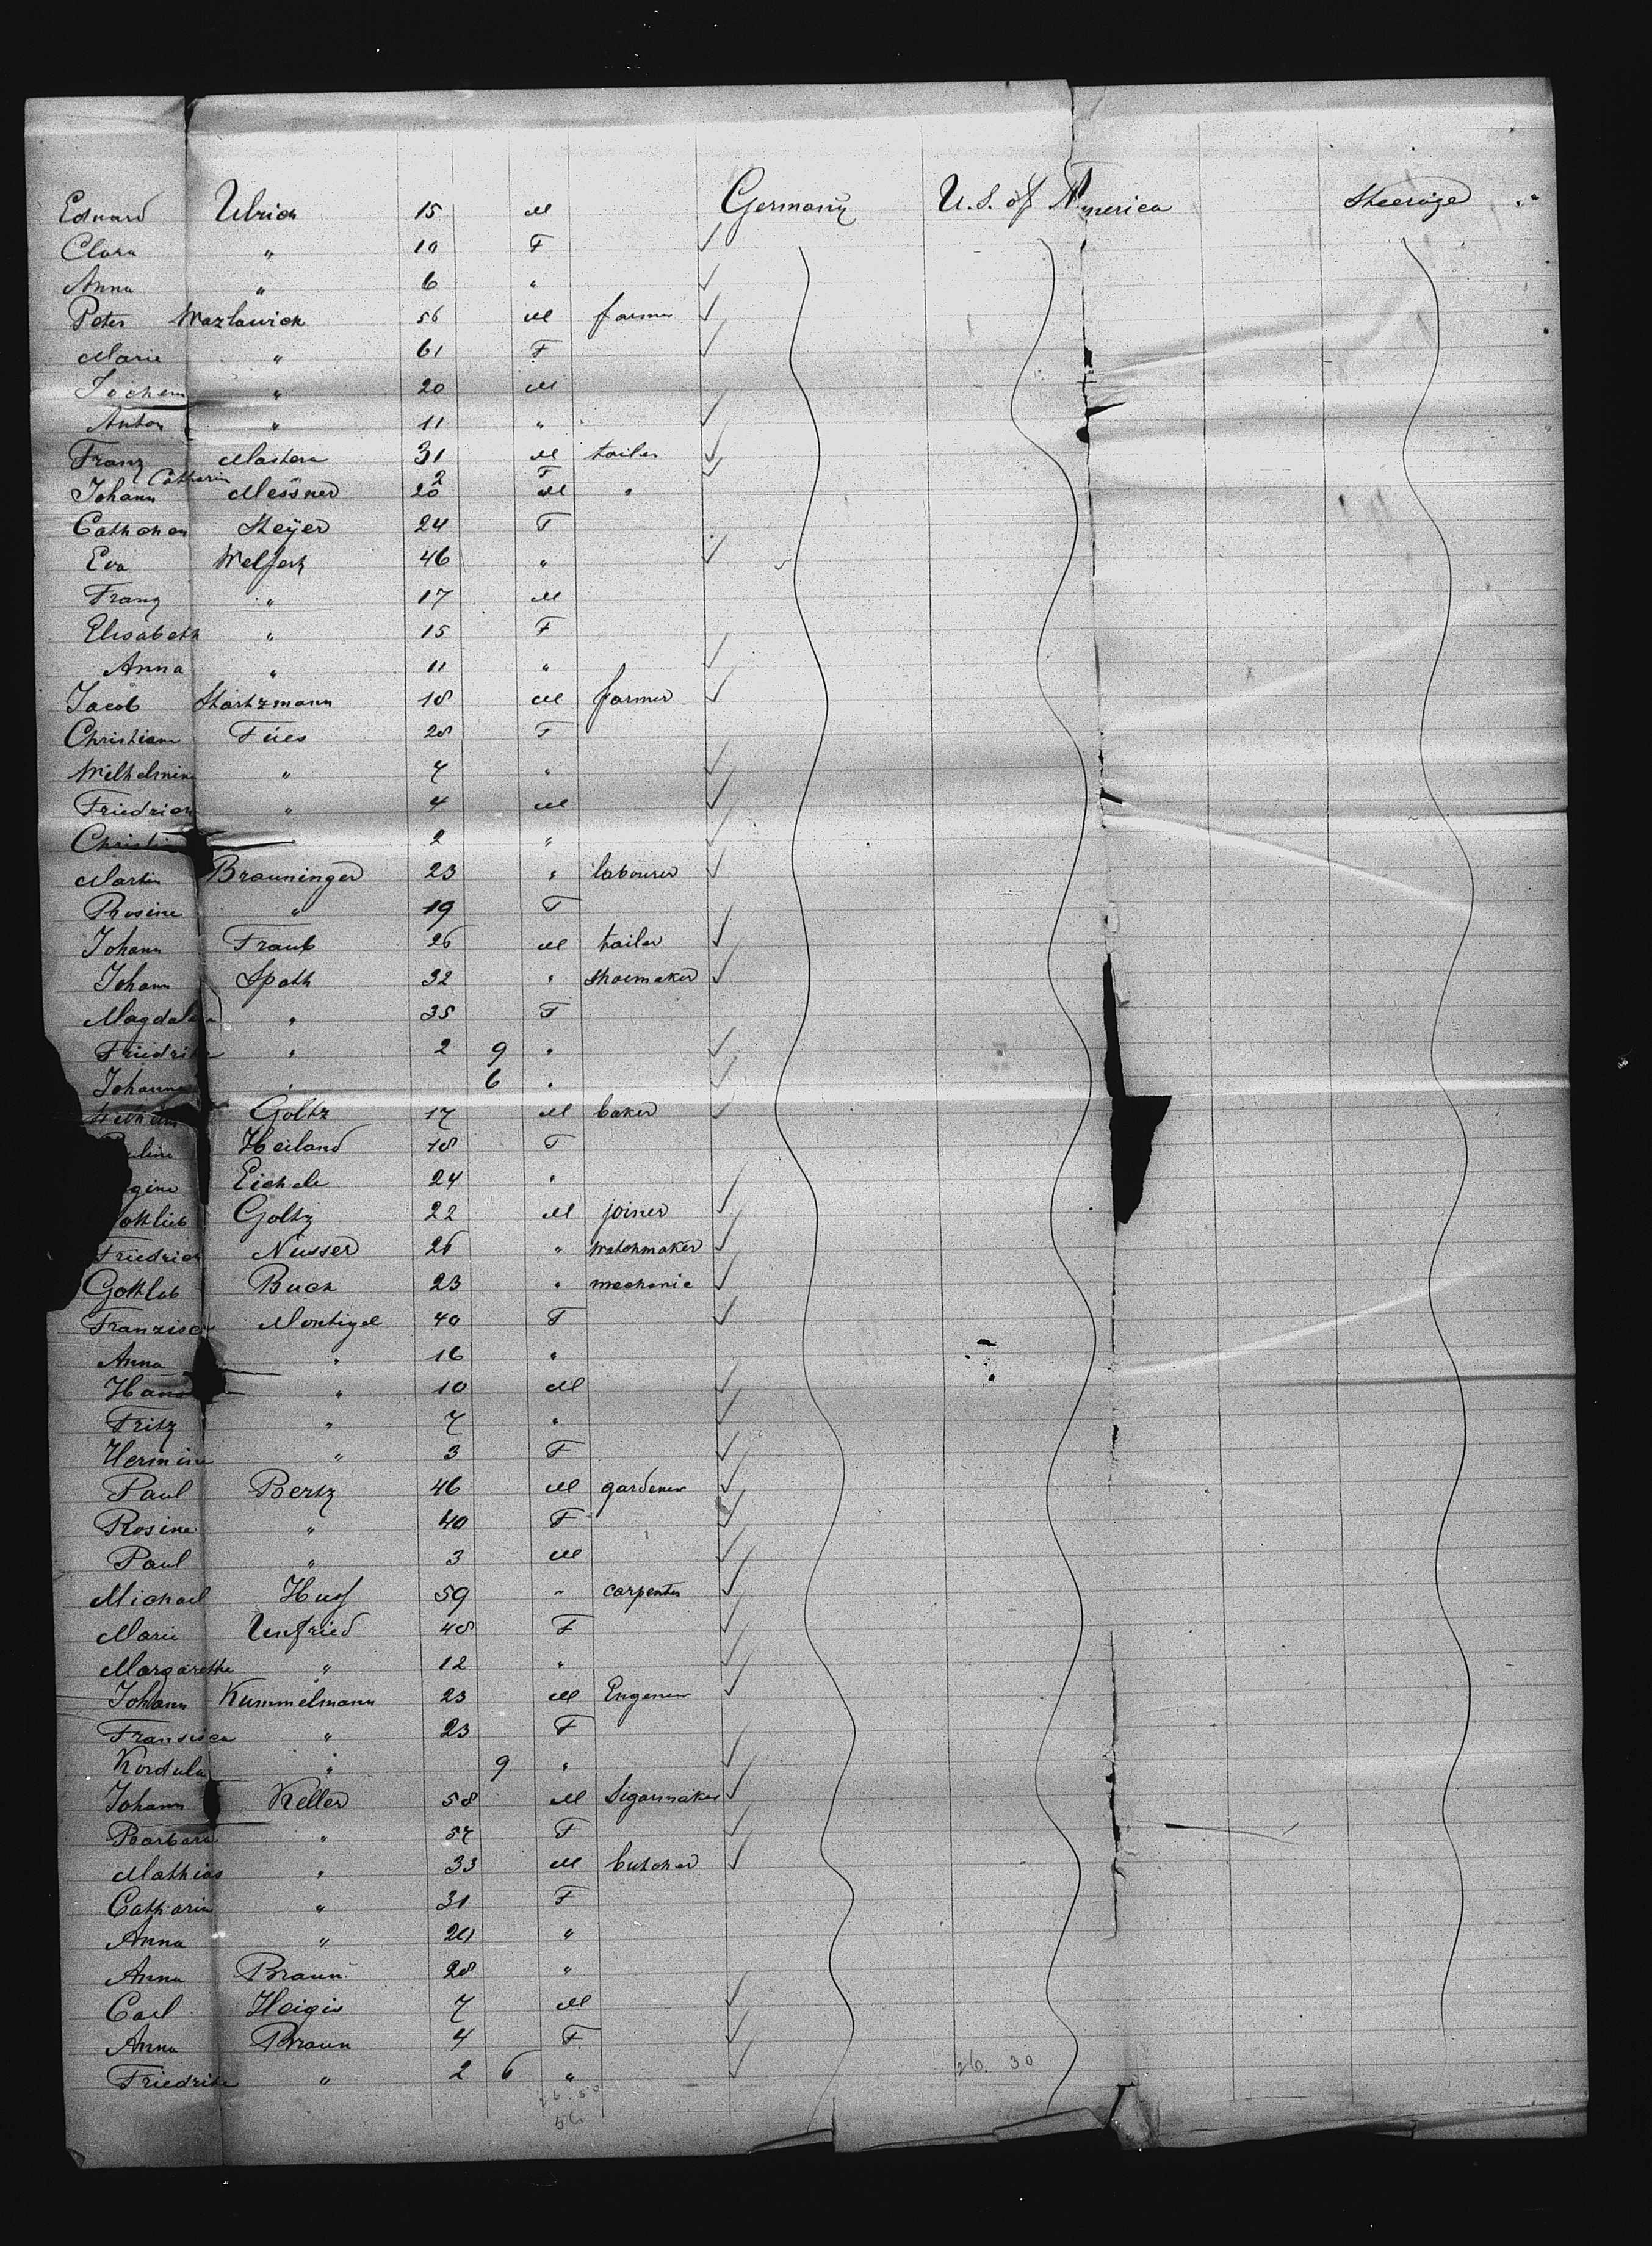 Eduard Ulrich 15 M Germany U.S. of America Steerage "
Clara " 10 F
Anna " 6 "
Peter Wazlawick 56 M farmer
Marie " 61 F
Jochem " 20 M
Anton " 11 "
Franz Mastera 31 M tailer
Catharin 2 F
Johann Messner 20 M "
Catharen Steyer 24 F
Eva Welfert 46 "
Franz " 17 M
Elisabeth " 15 F
Anna " 11 "
Jacob Startzmann 18 M farmer
Christian Fües 28 F
Wilhelmin " 7 "
Friedrich " 4 M
Christi " 2 "
Martin Brauninger 23 " labourer
Rosine " 19 F
Johann Traub 26 M tailer
Johann Spath 32 " shoemaker
Magdalen " 35 F
Friedrike " 2 9 "
Johanna " 6 "
Wilhelm Goltz 17 M baker
uline Heiland 18 F
gine Eichele 24 "
ottlieb Goltz 22 M joiner
Friedrich Nusser 26 " watchmaker
Gottlob Buck 23 " mechanic
Franzisca Montigel 40 F
Anna " 16 "
Hans " 10 M
Fritz " 7 "
Hermine " 3 F
Paul Bertz 46 M gardener
Rosine " 40 F
Paul " 3 M
Michael Huss 59 " carpenter
Marie Unfried 48 F
Margarethe " 12 "
Johann Kummelmann 23 M Engener
Fransisca " 23 F
Kordula " 9 "
Johann Keller 58 M Sigarmaker
Barbara " 57 F
Mathias " 33 M butcher
Catharin " 31 F
Anna " 20 "
Anna Braun 28 "
Carl Heigis 7 M
Anna Braun 4 F
Friedrike " 2 6 "
26. 30
26. 30
56